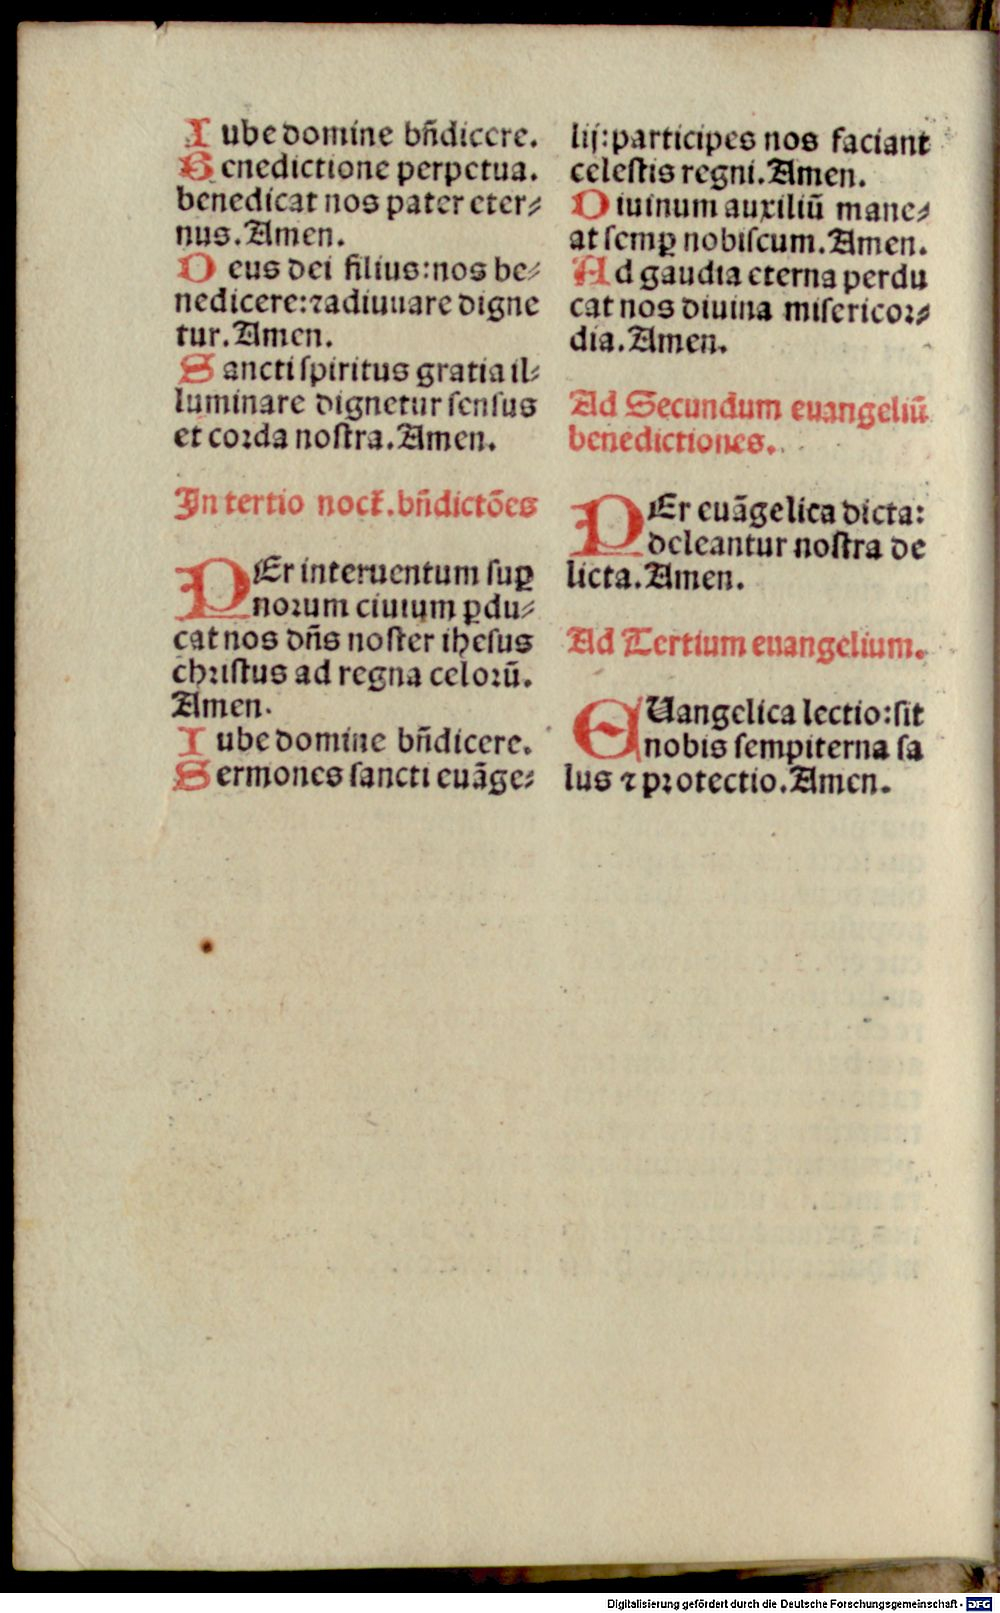 Iube domine bñdicere.
Benedictione perpetua.
benedicat nos pater eter⸗
nus. Amen.
Deus dei filius: nos be⸗
nedicere: ⁊ adiuuare digne
tur. Amen.
Sancti ſpiritus gratia il⸗
luminare dignetur ſenſus
et coꝛda noſtra. Amen.
In tertio noct̃. bñdictões
PEr interuentum ſuꝑ
noꝛum ciuium ꝑdu⸗
cat nos dñs noſter iheſus
chꝛiſtus ad regna celoꝛũ.
Amen.
Iube domine bñdicere.
Sermones ſancti euãge⸗
lij: participes nos faciant
celeſtis regni. Amen.
Diuinum auxiliũ mane⸗
at ſemꝑ nobiſcum. Amen.
Ad gaudia eterna perdu
cat nos diuina miſericoꝛ⸗
dia. Amen.
Ad Secundum euangeliũ
benedictiones.
PEr euãgelica dicta:
deleantur noſtra de
licta. Amen.
Ad Tertium euangelium.
EUangelica lectio: ſit
nobis ſempiterna ſa
lus ⁊ pꝛotectio. Amen.
Digitalisierung gefördert durch die Deutsche Forschungsgemeinschaft - DFG